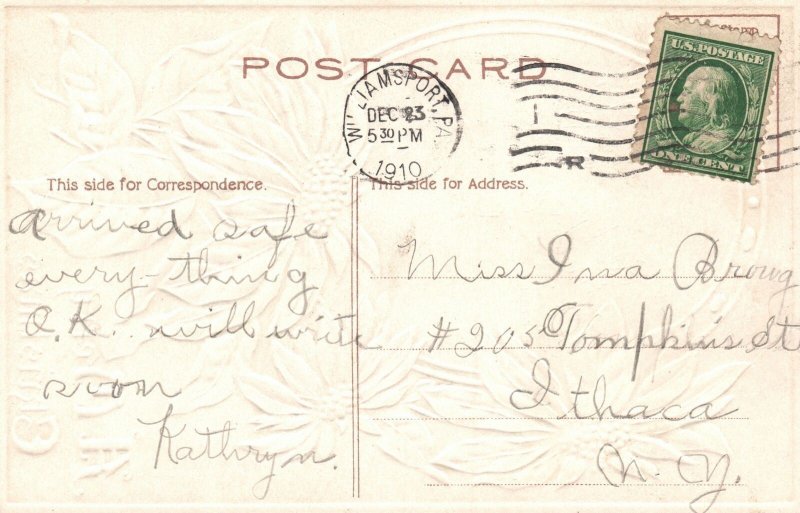 POST CARD
U.S. POSTAGE
ONE CENT
WILLIAMSPORT, PA
DEC 23
5 30 PM
1910
This side for Correspondence.
This side for Address.
arrived safe
every-thing
O.K. will write
soon
Kathryn.
Miss Ina
#205 Tompkins St
Ithaca
N.Y.